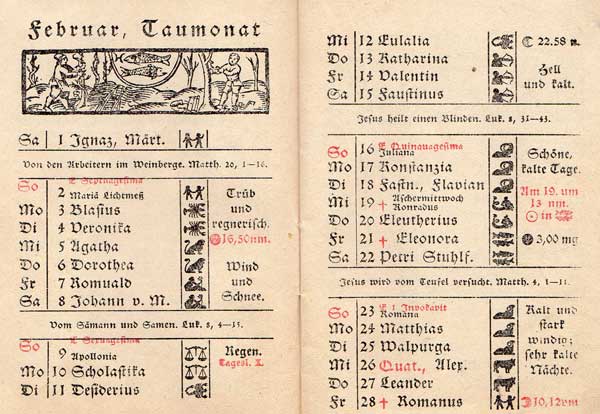 Februar, Taumonat
Sa 1 Ignaz, Märt.
Von den Arbeitern im Weinberge. Matth. 20, 1–16.
So 2 E Septuagesima
Mariä Lichtmeß
Mo 3 Blasius
Di 4 Veronika
Mi 5 Agatha
Do 6 Dorothea
Fr 7 Romuald
Sa 8 Johann v. M.
Trüb
und
regnerisch.
16,50nm.
Wind
und
Schnee.
Vom Sämann und Samen. Luk. 8, 4–15.
So 9 E Sexagesima
Apollonia
Mo 10 Scholastika
Di 11 Desiderius
Regen.
Tagesl. X.
Mi 12 Eulalia
Do 13 Katharina
Fr 14 Valentin
Sa 15 Faustinus
22.58 n.
Hell
und kalt.
Jesus heilt einen Blinden. Luk. 8, 31–43.
So 16 E Quinquagesima
Juliana
Mo 17 Konstanzia
Di 18 Fastn., Flavian
Mi 19 + Aschermittwoch
Konradus
Do 20 Eleutherius
Fr 21 + Eleonora
Sa 22 Petri Stuhlf.
Schöne,
kalte Tage.
Am 19. um
13 nm.
in
3,00 mg
Jesus wird vom Teufel versucht. Matth. 4, 1–11.
So 23 E 1 Invokavit
Romana
Mo 24 Matthias
Di 25 Walpurga
Mi 26 Quat., Alex.
Do 27 Leander
Fr 28 + Romanus
Kalt und
stark
windig;
sehr kalte
Nächte.
10,12vm